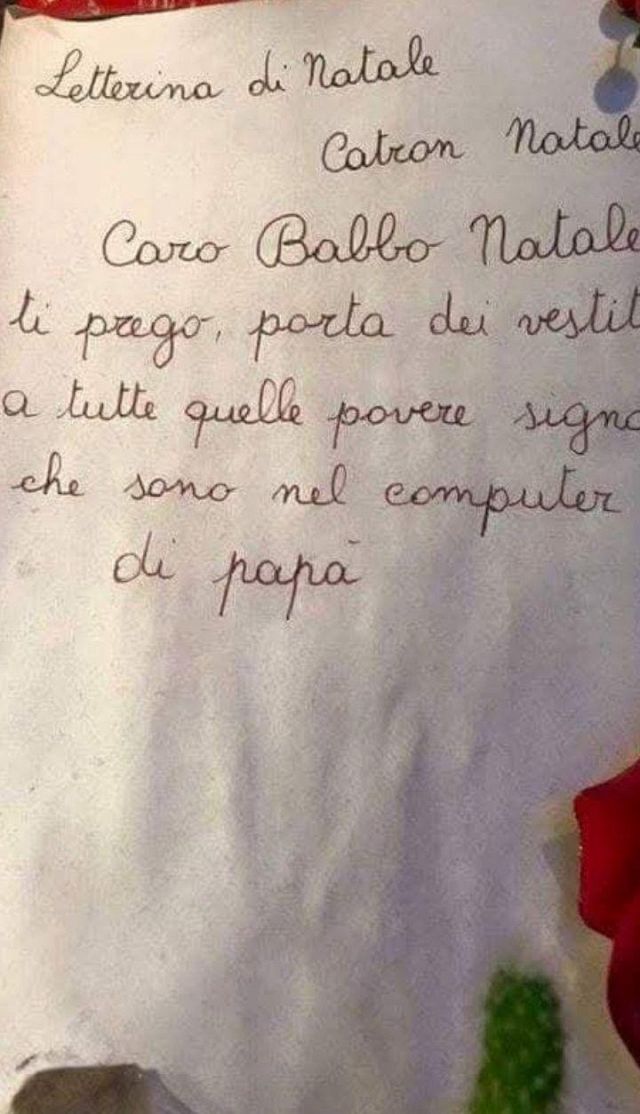 Letterina di Natale
Catron Natale
Caro Babbo Natale
ti prego, porta dei vestit
a tutte quelle povere signo
che sono nel computer
di papà